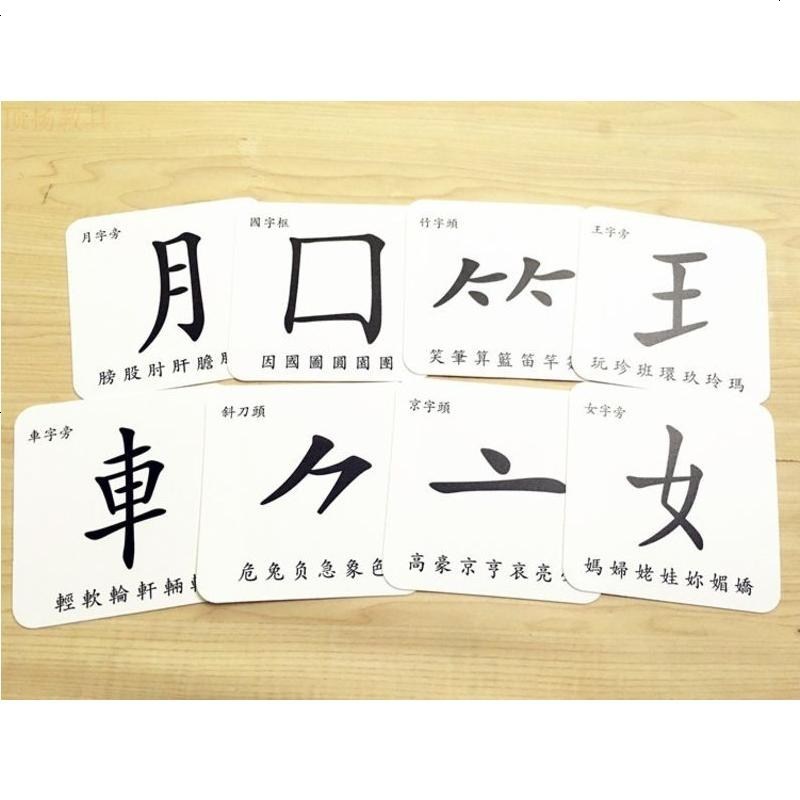 顶杨教具
月字旁
月
膀股肘肝膽
國字框
囗
因國圖圓固團
竹字頭
⺮
笑筆算籃笛竿
王字旁
王
玩珍班環玖玲瑪
車字旁
車
輕軟輪軒輛
斜刀頭
⺈
危兔负急象色
京字頭
亠
高豪京亨哀亮
女字旁
女
媽婦姥娃妳媚嬌